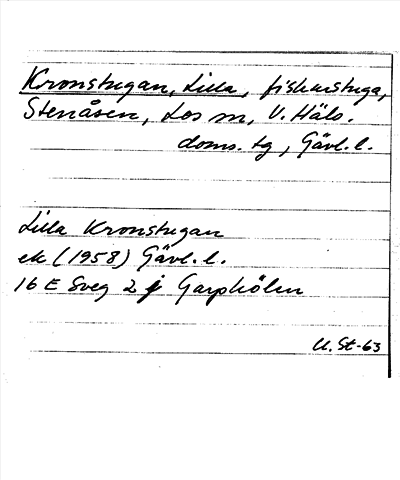 Kronstugan, Lilla, fiskarstuga,
Stenåsen, Los sn, V. Häls.
doms. tg, Gävl. l.
Lilla Kronstugan
ek (1958) Gävl. l.
16 E Sveg 2 j Garphöln
U. St-63